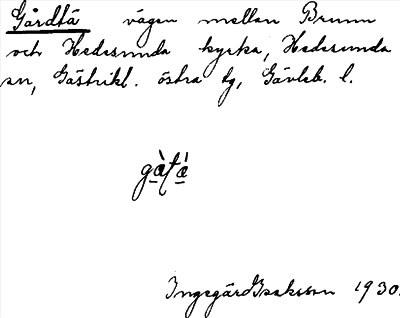 Gårdtä vägen mellan Brunn
och Hedesunda kyrka, Hedesunda
sn, Gästrikl. östra tg, Gävleb. l.
gàtá
Ingegärd Isaksson 1930.